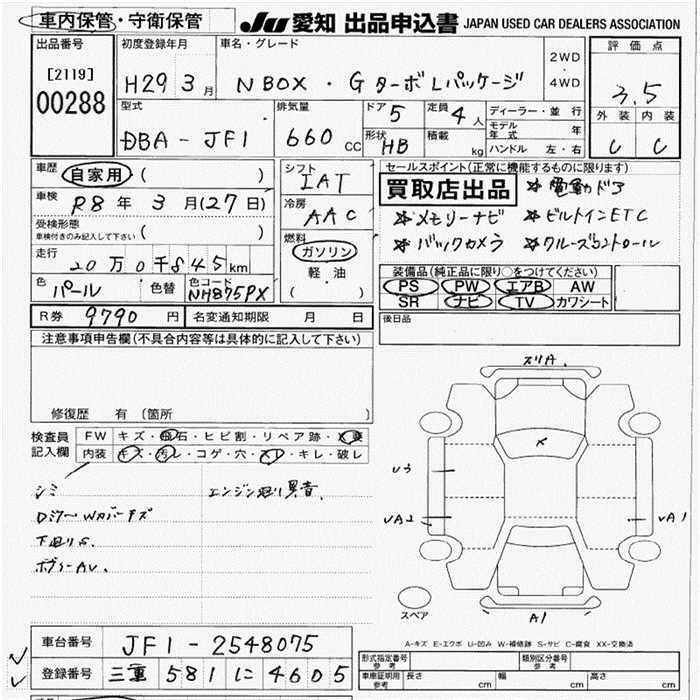 車内保管・守衛保管
JU 愛知 出品申込書 JAPAN USED CAR DEALERS ASSOCIATION
出品番号
[2119]
00288
初度登録年月
H29 3月
車名・グレード
N BOX ・ G ターボLパッケージ
2WD
・
4WD
評価点
3.5
外装 内装
C C
型式
DBA - JF1
排気量
660 CC
ドア 5
形状 HB
定員 4人
積載 kg
ディーラー・並行
モデル年式 年
ハンドル 左・右
車歴 自家用 ( )
車検 R8年 3月(27日)
受検形態
車検付きのみ記入して下さい ( )
走行 20万0千845km
色 パール 色替 色コード NH875PX
シフト
IAT
冷房
AAC
燃料
ガソリン
軽・油
( )
セールスポイント(正常に機能するものに限ります)
買取店出品 ☆電動ドア
☆メモリーナビ ☆ビルトインETC
☆バックカメラ ☆クルーズコントロール
装備品(純正品に限り○をつけてください)
PS PW エアB AW
SR ナビ TV カワシート
R券 9790円 名変通知期限 月 日
後日品
注意事項申告欄(不具合内容等は具体的に記入して下さい)
修復歴 有 〔箇所
検査員記入欄
FW キズ・飛石・ヒビ割・リペア跡・X要
内装 キズ・汚レ・コゲ・穴・スレ・キレ・破レ
シミ エンジン廻り異音
DミラーWカバーキズ
下廻りS
ボディーAU
スリA
X
U3
UA2
UA1
A1
スペア
A-キズ E-エクボ U-凹み W-補修跡 S-サビ C-腐食 XX-交換済
車台番号 JF1 - 2548075
登録番号 三重 581 に 4605
形式指定番号 参考
類別区分番号 参考
車庫証明用 参考 長さ cm 幅 cm 高さ cm